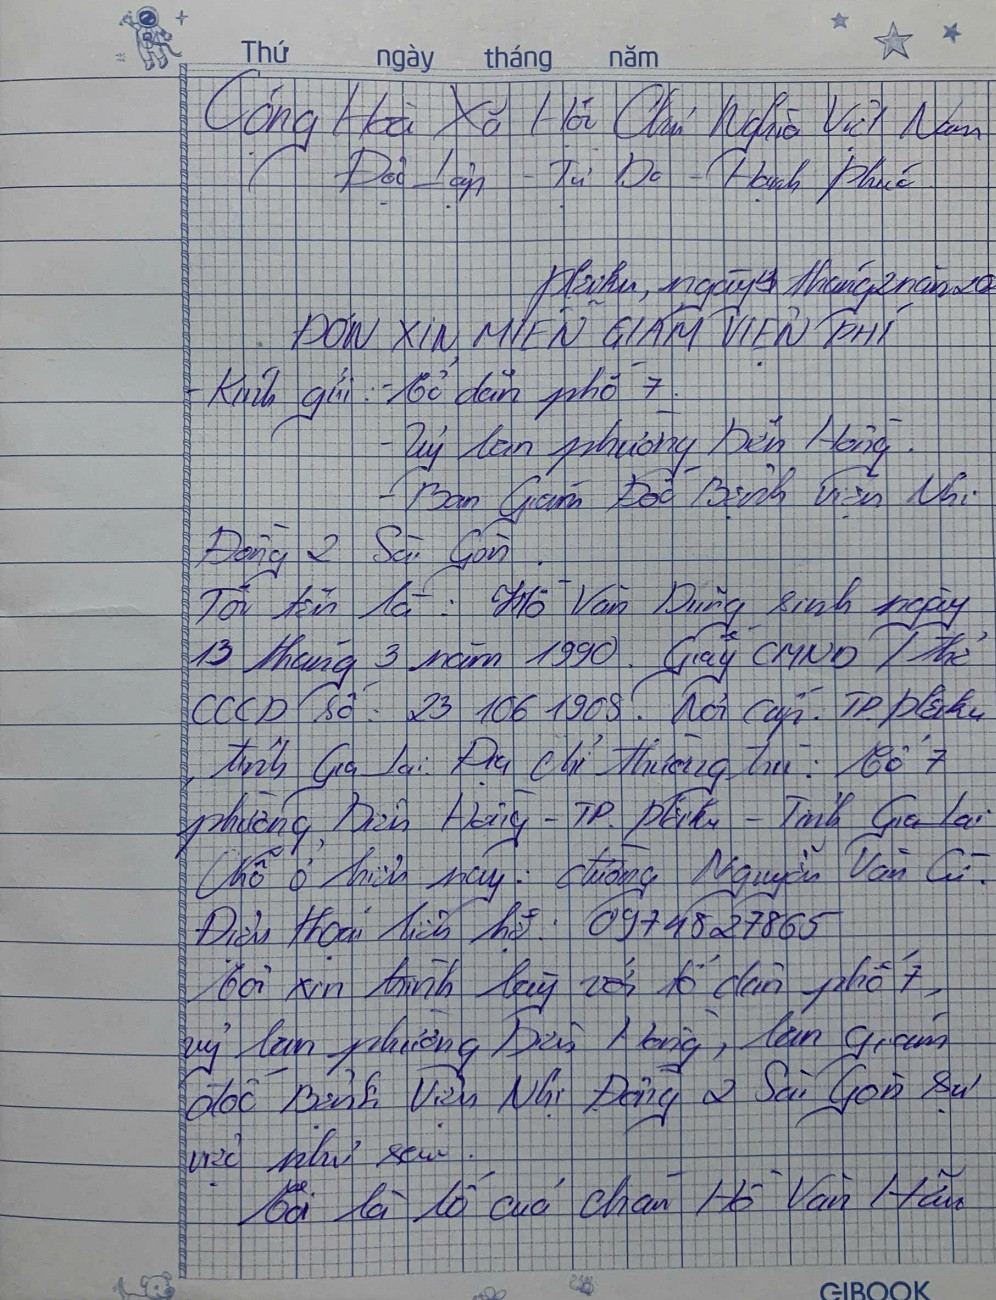 Thứ ngày tháng năm
Cộng Hoà Xã Hội Chủ Nghĩa Việt Nam
Độc Lập - Tự Do - Hạnh Phúc
Pleiku, ngày tháng 2 năm 20
ĐƠN XIN MIỄN GIẢM VIỆN PHÍ
- Kính gửi: - Tổ dân phố 7.
- Uỷ ban phường Diên Hồng.
- Ban Giám Đốc Bệnh Viện Nhi
Đồng 2 Sài Gòn.
Tôi tên là: Hồ Văn Dũng sinh ngày
13 tháng 3 năm 1990. Giấy CMND / thẻ
CCCD số: 23 106 1908. Nơi cấp. TP Pleiku
tỉnh Gia Lai Địa chỉ thường trú: Tổ 7
phường Diên Hồng - TP. Pleiku - Tỉnh Gia Lai
Chỗ ở hiện nay: đường Nguyễn Văn Cừ.
Điện thoại liên hệ: 0974827865
Tôi xin trình bày với tổ dân phố 7,
uỷ ban phường Diên Hồng, ban giám
đốc Bệnh Viện Nhi Đồng 2 Sài Gòn sự
việc như sau.
Tôi là bố của cháu Hồ Văn
GIBOOK